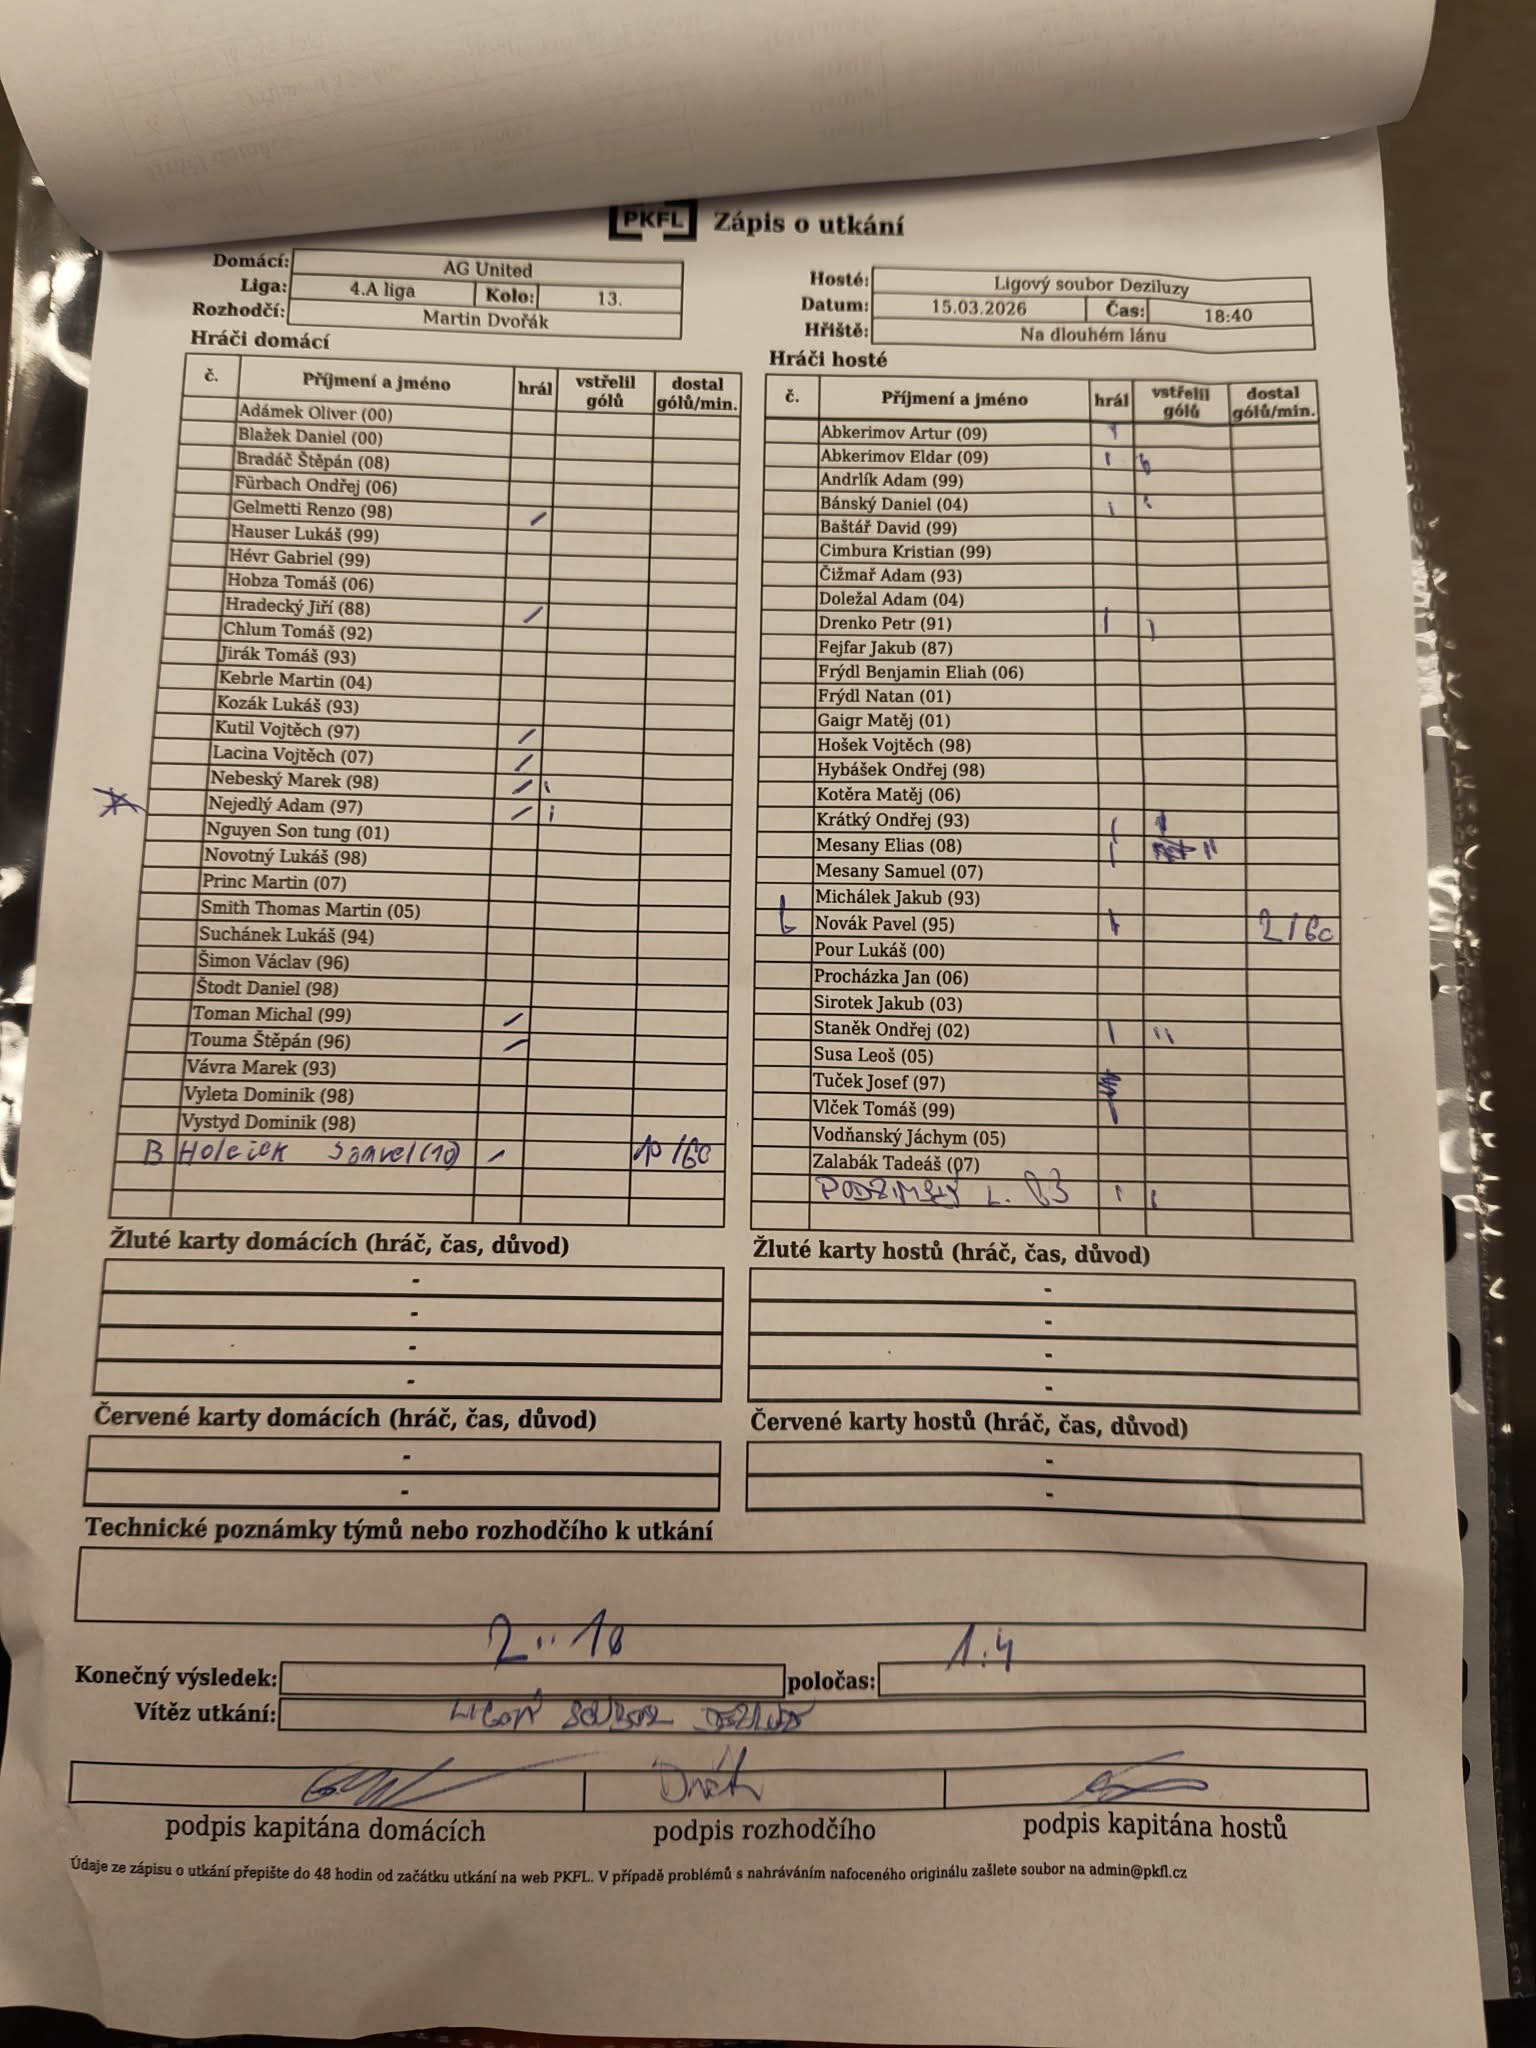 PKFL Zápis o utkání
Domácí: AG United
Liga: 4.A liga Kolo: 13.
Rozhodčí: Martin Dvořák
Hosté: Ligový soubor Deziluzy
Datum: 15.03.2026 Čas: 18:40
Hřiště: Na dlouhém lánu
Hráči domácí
č. Příjmení a jméno hrál vstřelil gólů dostal gólů/min.
Adámek Oliver (00)
Blažek Daniel (00)
Bradáč Štěpán (08)
Fürbach Ondřej (06)
Gelmetti Renzo (98)
Hauser Lukáš (99)
Hévr Gabriel (99)
Hobza Tomáš (06)
Hradecký Jiří (88)
Chlum Tomáš (92)
Jirák Tomáš (93)
Kebrle Martin (04)
Kozák Lukáš (93)
Kutil Vojtěch (97)
Lacina Vojtěch (07)
Nebeský Marek (98)
Nejedlý Adam (97)
Nguyen Son tung (01)
Novotný Lukáš (98)
Princ Martin (07)
Smith Thomas Martin (05)
Suchánek Lukáš (94)
Šimon Václav (96)
Štodt Daniel (98)
Toman Michal (99)
Touma Štěpán (96)
Vávra Marek (93)
Vyleta Dominik (98)
Vystyd Dominik (98)
B Holeček Samuel (10) 10/60
Hráči hosté
č. Příjmení a jméno hrál vstřelil gólů dostal gólů/min.
Abkerimov Artur (09)
Abkerimov Eldar (09)
Andrlík Adam (99)
Bánský Daniel (04)
Baštář David (99)
Cimbura Kristian (99)
Čižmař Adam (93)
Doležal Adam (04)
Drenko Petr (91)
Fejfar Jakub (87)
Frýdl Benjamin Eliah (06)
Frýdl Natan (01)
Gaigr Matěj (01)
Hošek Vojtěch (98)
Hybášek Ondřej (98)
Kotěra Matěj (06)
Krátký Ondřej (93)
Mesany Elias (08)
Mesany Samuel (07)
Michálek Jakub (93)
Novák Pavel (95) 2/60
Pour Lukáš (00)
Procházka Jan (06)
Sirotek Jakub (03)
Staněk Ondřej (02)
Susa Leoš (05)
Tuček Josef (97)
Vlček Tomáš (99)
Vodňanský Jáchym (05)
Zalabák Tadeáš (07)
PODZIMSKÝ L. 03
Žluté karty domácích (hráč, čas, důvod)
-
-
-
-
Žluté karty hostů (hráč, čas, důvod)
-
-
-
-
Červené karty domácích (hráč, čas, důvod)
-
-
Červené karty hostů (hráč, čas, důvod)
-
-
Technické poznámky týmů nebo rozhodčího k utkání
Konečný výsledek: 2:10 poločas: 1:4
Vítěz utkání: LIGOVÝ SOUBOR
podpis kapitána domácích podpis rozhodčího podpis kapitána hostů
Údaje ze zápisu o utkání přepište do 48 hodin od začátku utkání na web PKFL. V případě problémů s nahráváním nafoceného originálu zašlete soubor na admin@pkfl.cz